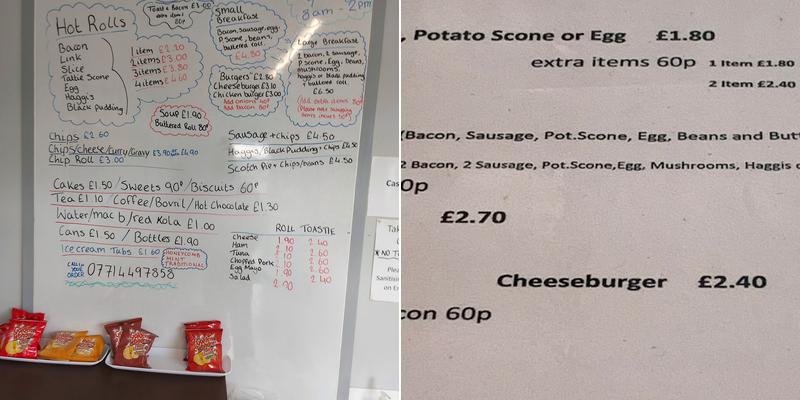 Toast & Bacon £3.00
extra items
60p
8am - 2pm
Small
Breakfast
Bacon, sausage, egg,
P.scone, beans,
buttered roll.
£4.80
Hot Rolls
Bacon
Link
Slice
Tattie Scone
Egg
Haggis
Black Pudding
1 item £2.20
2 items £3.00
3 items £3.80
4 items £4.60
Large Breakfast
2 bacon, 2 sausage,
P.scone, Egg, Beans,
mushrooms,
haggis or black pudding
+ buttered roll.
£6.50
Burgers £2.80
Cheeseburger £3.10
Chicken burger £3.00
Add onions 40p
Add bacon 80p
Soup £1.90
Buttered Roll 80p
Chips £2.60
Chips/cheese/curry/gravy £3.90 £4.90
Chip Roll £3.00
Sausage + Chips £4.50
Haggis/Black Pudding + Chips £4.50
Scotch Pie + Chips/beans £4.50
Cakes £1.50 / Sweets 90p / Biscuits 60p
Tea £1.10 / Coffee/Bovril/Hot Chocolate £1.30
Water/mac b/red Kola £1.00
Cans £1.50 / Bottles £1.90
Ice cream Tubs £1.60
HONEYCOMB
MINT
TRADITIONAL
CALL IN
YOUR
ORDER
07714497858
ROLL TOASTIE
Cheese 1.90 2.40
Ham 2.10 2.60
Tuna 2.10 2.60
Chopped Pork 2.10 2.60
Egg Mayo 1.90 2.40
Salad 2.90
Cas
Tak
, Potato Scone or Egg £1.80
extra items 60p 1 Item £1.80
2 Item £2.40
(Bacon, Sausage, Pot.Scone, Egg, Beans and Butt
2 Bacon, 2 Sausage, Pot.Scone,Egg, Mushrooms, Haggis o
0p
£2.70
Cheeseburger £2.40
con 60p